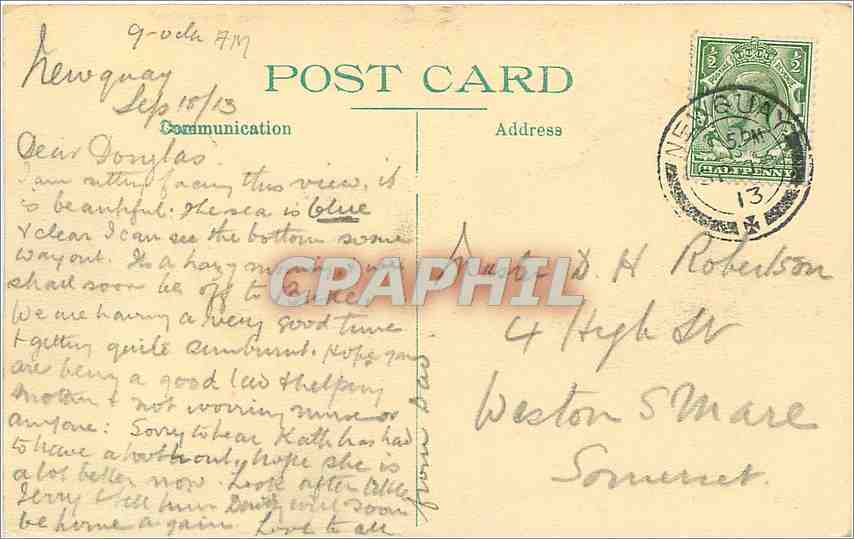 9-oclk AM
Newquay
Sep 18/13
POST CARD
Communication
Address
Dear Douglas.
I am sitting facing this view, it
is beautiful. The sea is blue
& clear I can see the bottom some
way out. Its a hazy morning & we
shall soon be off to
We are having a very good time
& getting quite sunburnt. Hope you
are being a good lad & helping
Mother & not worrying nurse or
anyone: Sorry to hear Kath has had
to have a tooth out, hope she is
a lot better now. Look after little
Jerry & tell him Daddy will soon
be home again. Love to all
from Dad
Master D. H Robertson
4 High St
Weston S Mare
Somerset.
NEWQUAY
5 PM
13
½ ½
HALFPENNY
CPAPHIL